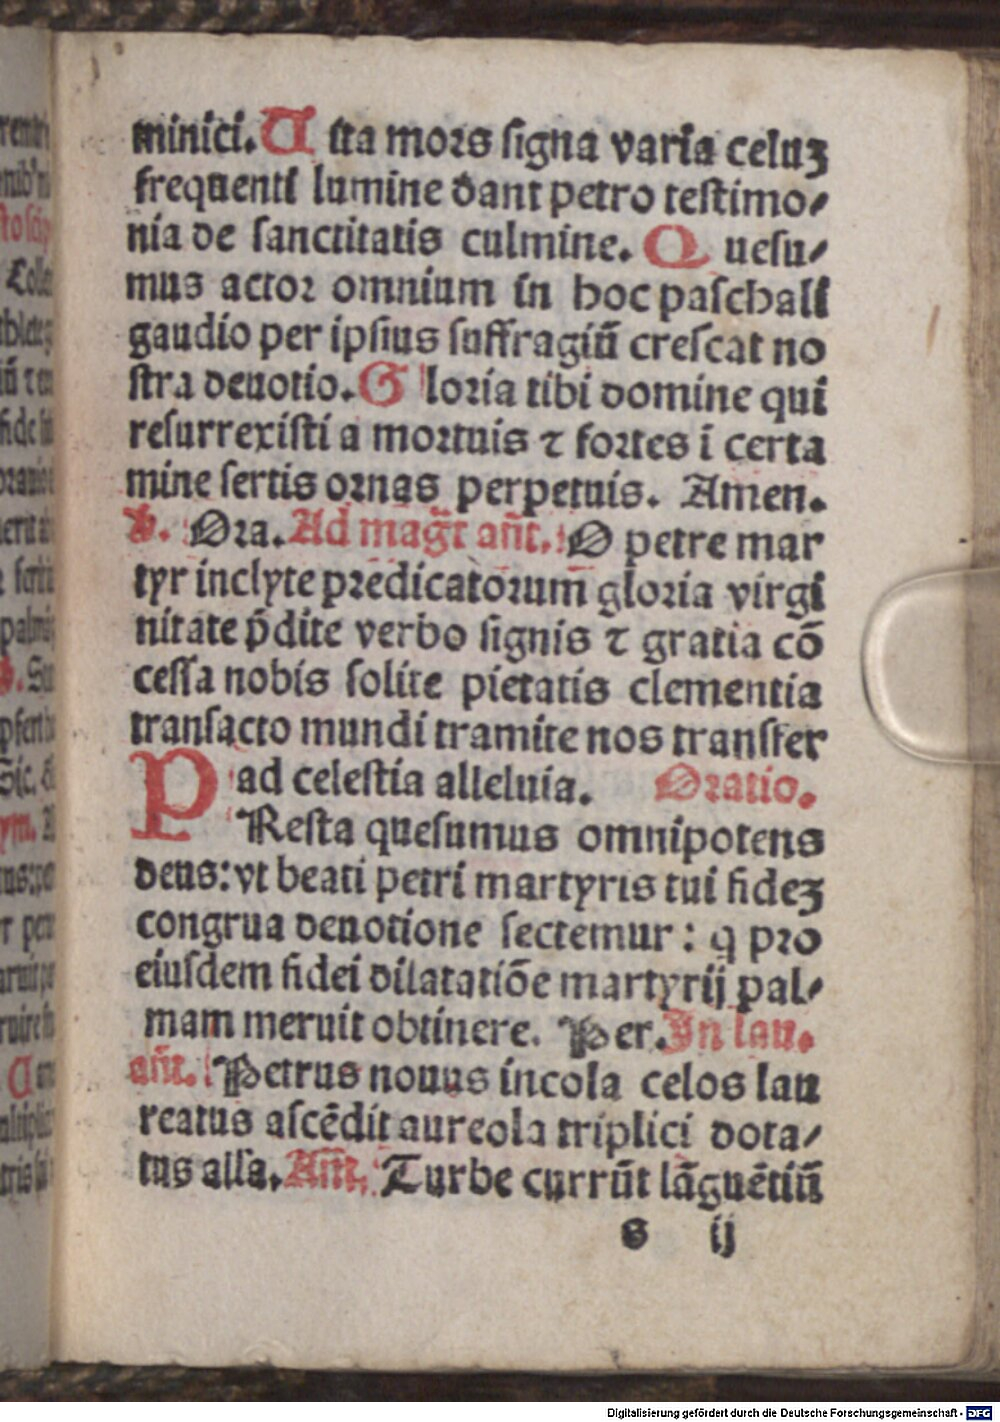 minici. U ita mors signa varia celuʒ
frequenti lumine dant petro testimo⸗
nia de sanctitatis culmine. Q uesu⸗
mus actor omnium in hoc paschali
gaudio per ipsius suffragiū crescat no
stra deuotio. G loria tibi domine qui
resurrexisti a mortuis ⁊ fortes ī certa
mine sertis ornas perpetuis. Amen.
Ora. Ad mag̃t an̄t. O petre mar
tyr inclyte predicatorum gloria virgi
nitate p̄dite verbo signis ⁊ gratia cō
cessa nobis solite pietatis clementia
transacto mundi tramite nos transfer
ad celestia alleluia. Oratio.
P Resta quesumus omnipotens
deus: vt beati petri martyris tui fideʒ
congrua deuotione sectemur: q pro
eiusdem fidei dilatatiōe martyrij pal⸗
mam meruit obtinere. Per. In lau.
an̄t. Petrus nouus incola celos lau
reatus ascēdit aureola triplici dota⸗
tus alla. An̄t. Turbe currūt lāguētiū
s ij
Digitalisierung gefördert durch die Deutsche Forschungsgemeinschaft - DFG